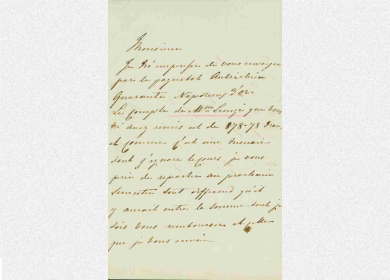 Monsieur
Je m'empresse de vous envoyer
par le paquebot Autrichien
Quarante Napoléons d'or.
Le Compte de que vous
m'avez remis est de 878-78
et comme c'est une monnaie
dont j'ignore le cours, je vous
prie de reporter au prochain
Semestre tout différend qu'il
y aurait entre la somme dont je
dois vous rembourser et celle
que je vous envoie